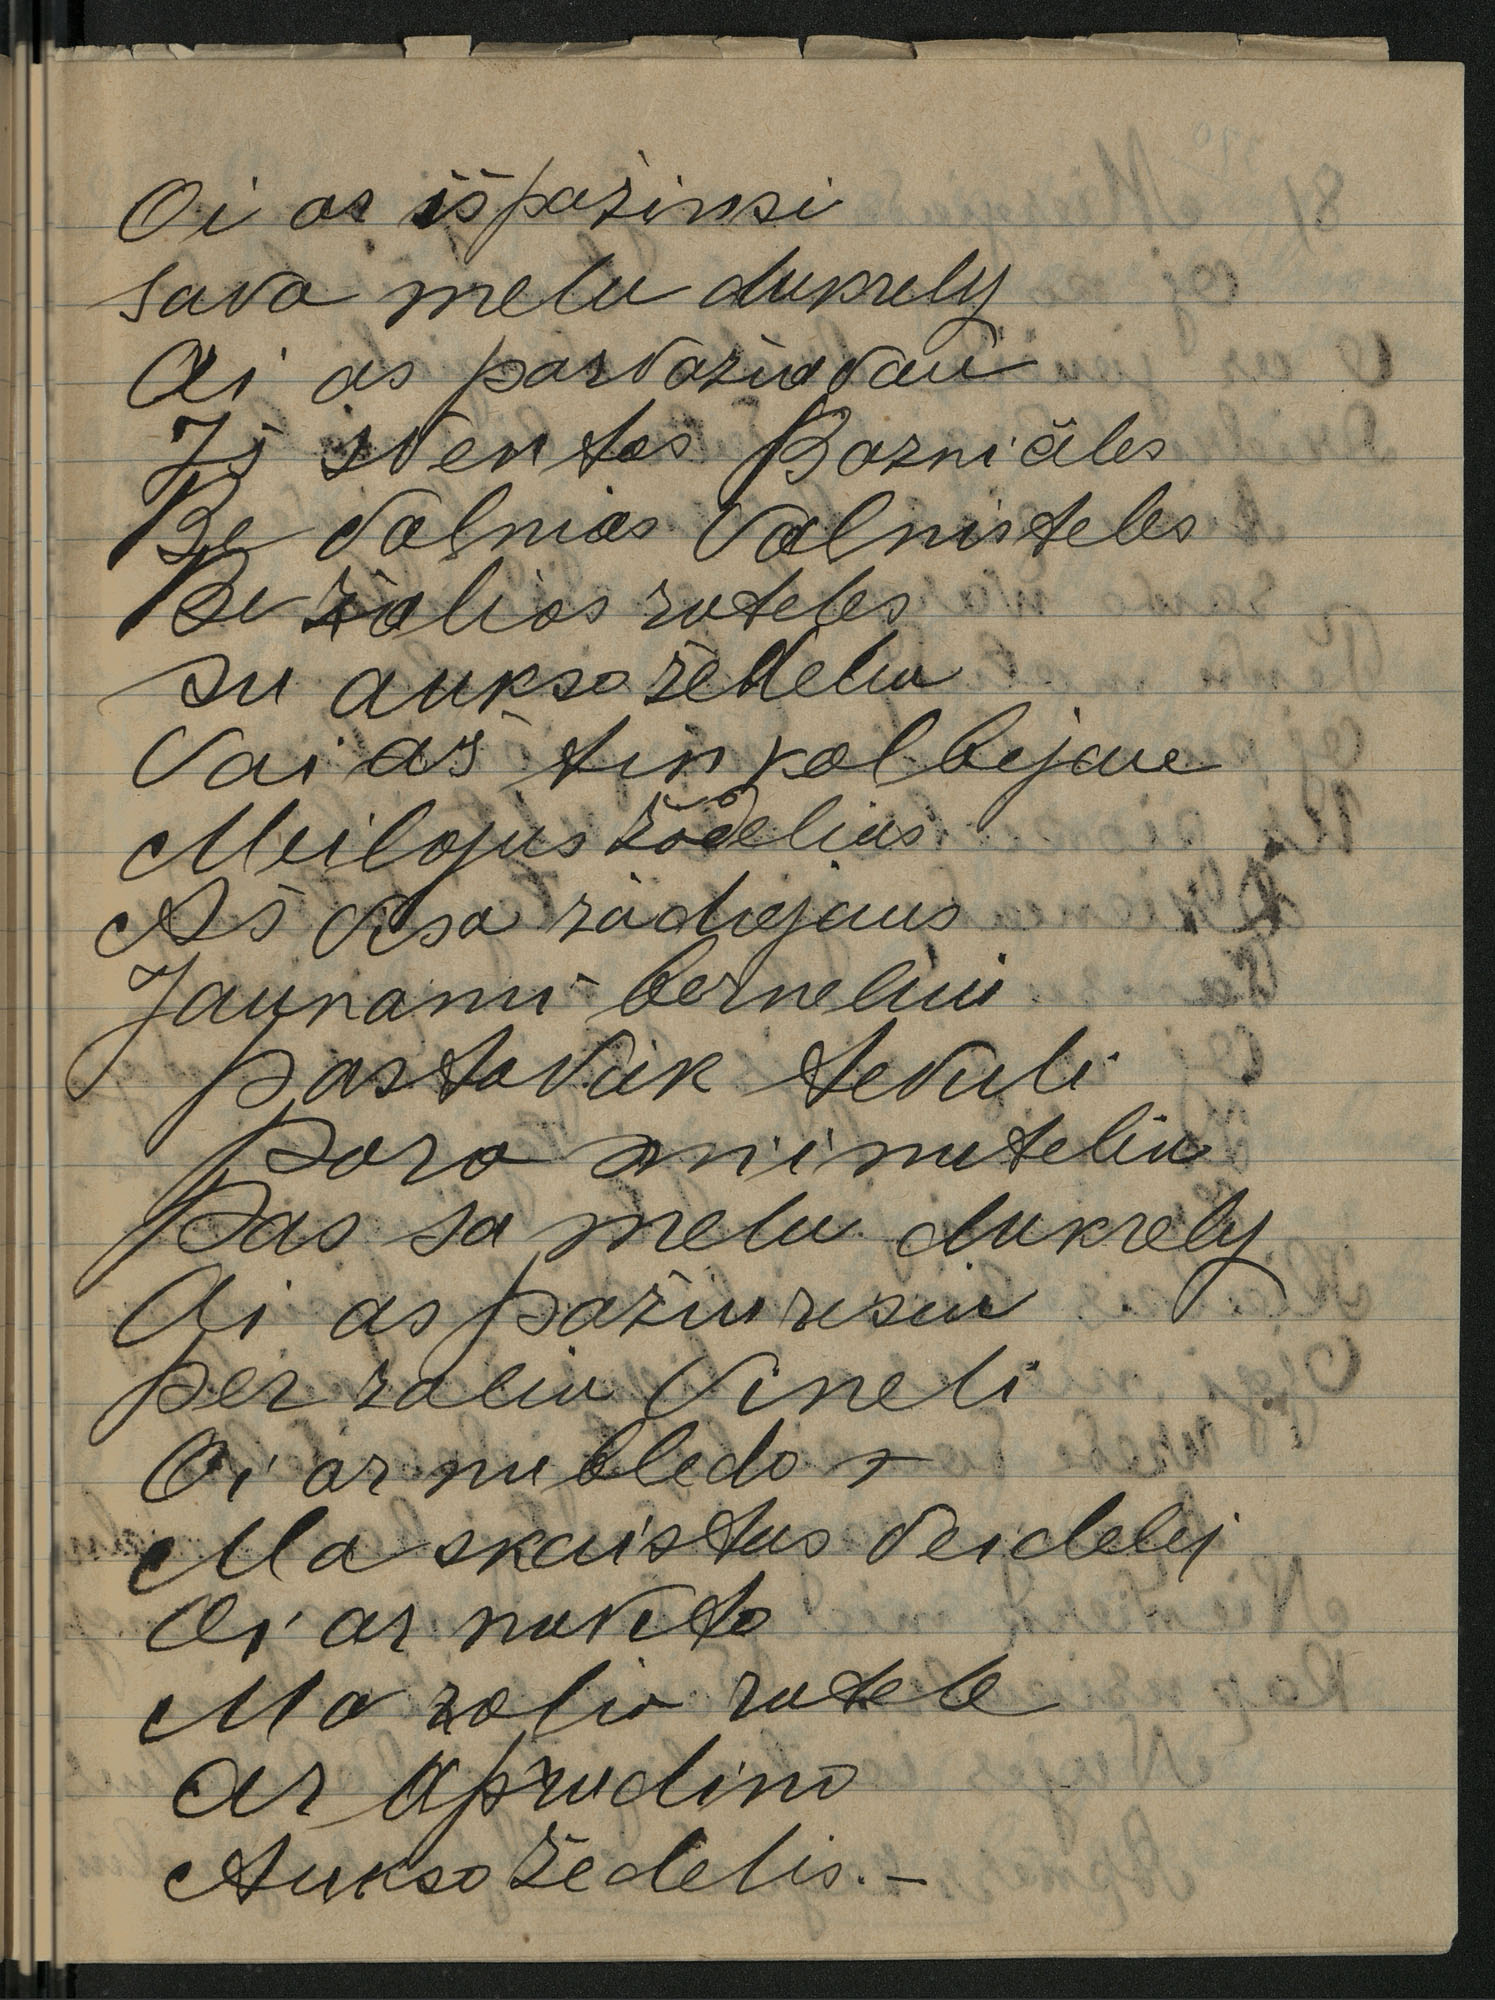 Oi ar išpažinsi
sava melu dukrely
Oi as parvažiavau
Iš sventos Bazničiles
Be valnios valnisteles
Be žalios ruteles
su aukso žedeliu
Vai aš tin kalbejau
Meilajus žodelius
Aš visa žadiejaus
Jaunamu berneliui
pastovik tevuli
poro minuteliu
Pas sa melu dukrely
Oi as pažiuresiu
per zaliu vineli
Oi ar nubledo
Ma skaistus veidelej
Oi ar nuvito
Ma zolio rutele
ar aprudino
Aukso žedelis. –